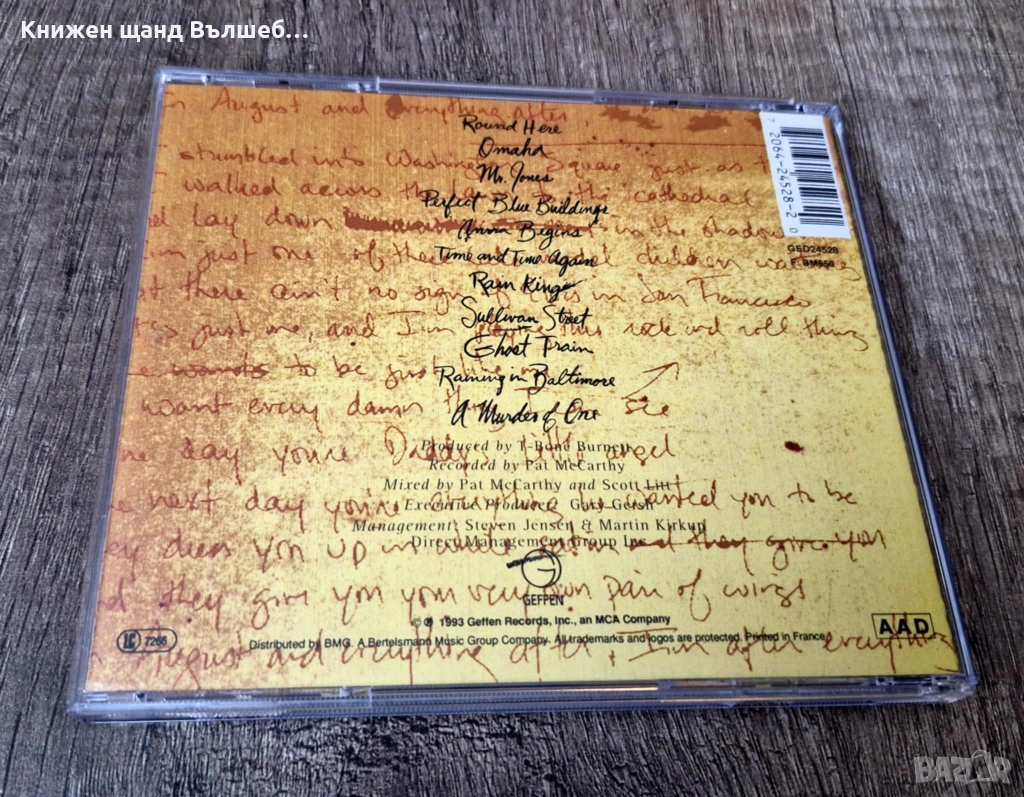 Книжен щанд Вълшеб...
August and everything after
Round Here
Omaha
Mr. Jones
Perfect Blue Buildings
Anna Begins
Time and Time Again
Rain King
Sullivan Street
Ghost Train
Raining in Baltimore
A Murder of One
stumbled into Washington Square just as
walked across the cathedral
lay down in the shadow
just one of the children
there ain't no sign of in San Francisco
just me and I'm this rock and roll thing
to be just
want every damn thing I see
day you're Daddy's little angel
next day you're everything he wanted you to be
dress you up in
give you
they give you your very own pair of wings
August and everything after, I'm after everything
Produced by T-Bone Burnett
Recorded by Pat McCarthy
Mixed by Pat McCarthy and Scott Litt
Executive Producer: Gary Gersh
Management: Steven Jensen & Martin Kirkup
Direct Management Group Inc.
G
GEFFEN
℗ 1993 Geffen Records, Inc., an MCA Company
Distributed by BMG. A Bertelsmann Music Group Company. All trademarks and logos are protected. Printed in France.
LC 7266
AAD
7 2064-24528-2 0
GED24528
F: BM650
BAZAR